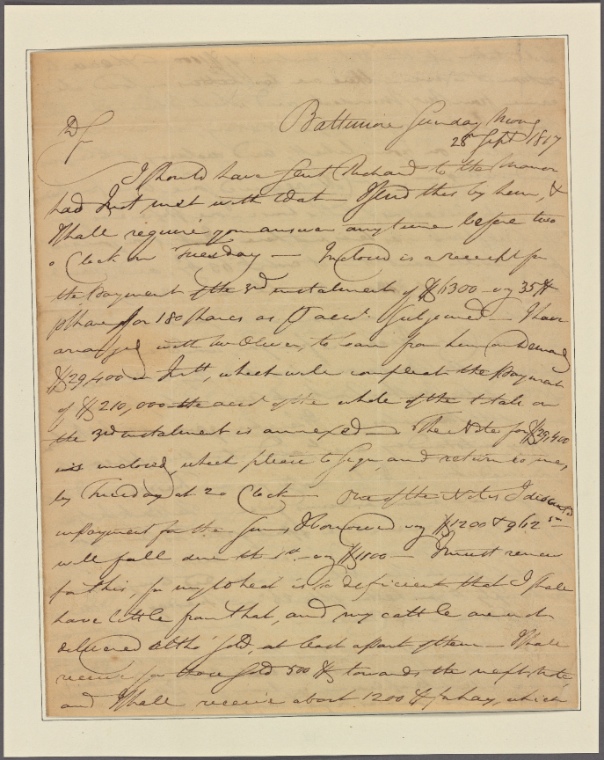 Baltimore Sunday Morng
28 Sept 1817
Dr
I should have sent Richard to the Manor
had I not met with I send this by him, &
I shall require your answer any time before two
o Clock on Tuesday — Inclosed is a receipt for
the Payment of the 3rd instalment of $6300 – vz 35 $
p share for 180 shares as p acct Subjoined — I have
arranged with to loan from him on Demand
$29,400 which will compleat the Payment
of $210,000 the acct of the whole of the on
the 3rd instalment is annexed — The Note for $29,400
is inclosed, which please to sign and return to me,
by Tuesday at 2 o Clock — One of the Notes I
in payment for the I borrowed vz $1200 & 962
will fall due the 1st – vz $1100 — I must renew
for this, for my is so deficient that I shall
have little from that, and my cattle are not
delivered altho' sold, at least a part of them — I shall
receive for those sold 500 $ towards the next Note
and I shall receive about 1200 $ p hay, which